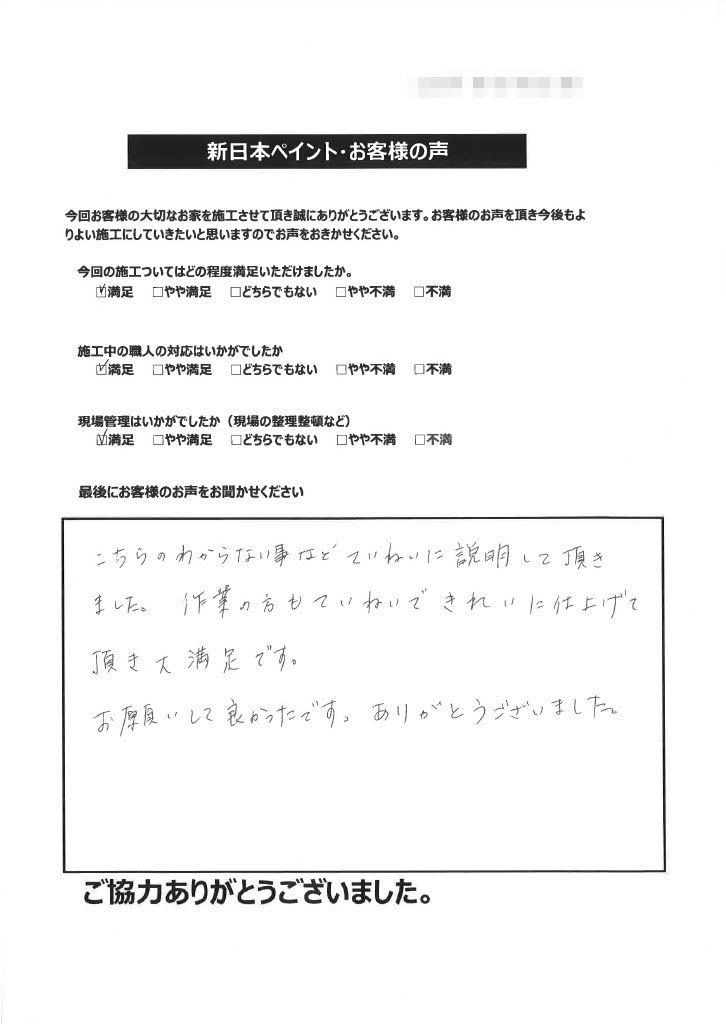 新日本ペイント・お客様の声
今回お客様の大切なお家を施工させて頂き誠にありがとうございます。お客様のお声を頂き今後もよ
りよい施工にしていきたいと思いますのでお声をおきかせください。
今回の施工ついてはどの程度満足いただけましたか。
☑満足 □やや満足 □どちらでもない □やや不満 □不満
施工中の職人の対応はいかがでしたか
☑満足 □やや満足 □どちらでもない □やや不満 □不満
現場管理はいかがでしたか（現場の整理整頓など）
☑満足 □やや満足 □どちらでもない □やや不満 □不満
最後にお客様のお声をお聞かせください
こちらのわからない事などていねいに説明して頂き
ました。 作業の方もていねいできれいに仕上げて
頂き大満足です。
お願いして良かったです。ありがとうございました。
ご協力ありがとうございました。